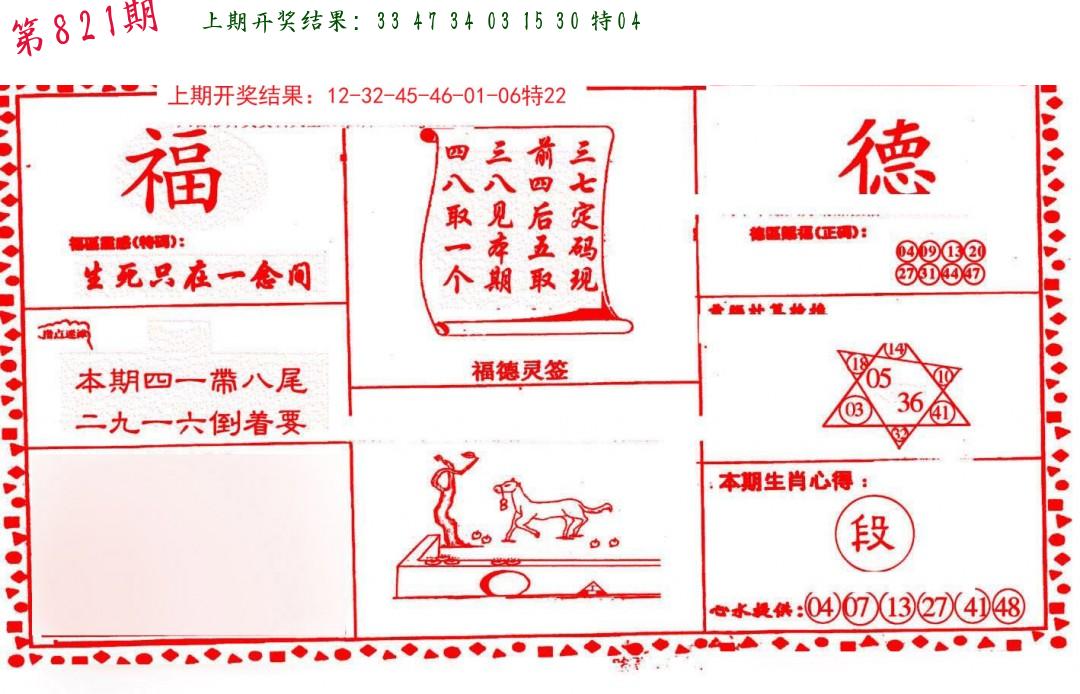 第821期
上期开奖结果：33 47 34 03 15 30 特04
上期开奖结果：12-32-45-46-01-06特22
福
生死只在一念间
三七定码现
前四后五取
三八见本期
四八取一个
福德灵签
德
(正码)：
04 09 13 20
27 31 44 47
本期四一帶八尾
二九一六倒着要
14
18 10
05
36
03 41
32
本期生肖心得：
段
心水提供：04 07 13 27 41 48